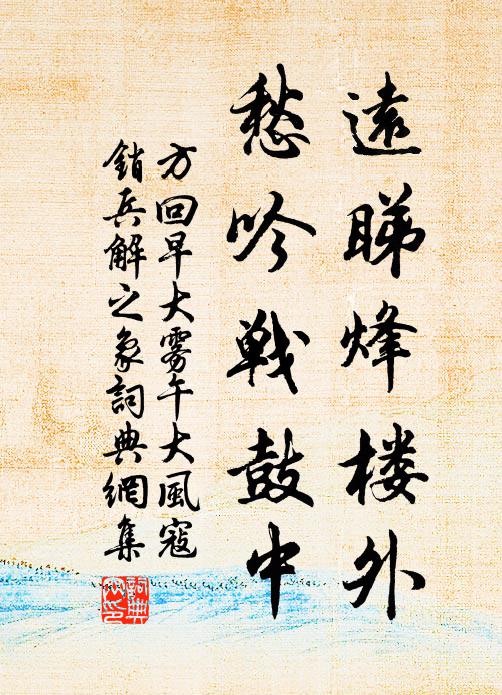 遠睇烽楼外
愁吟戦鼓中
方回早大霧午大風寇
銷兵解之象詞典網集